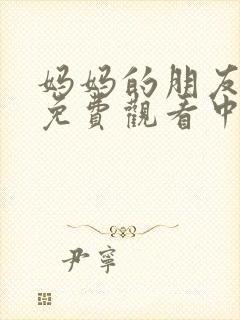 妈妈的朋友
免費觀看中
尹寧